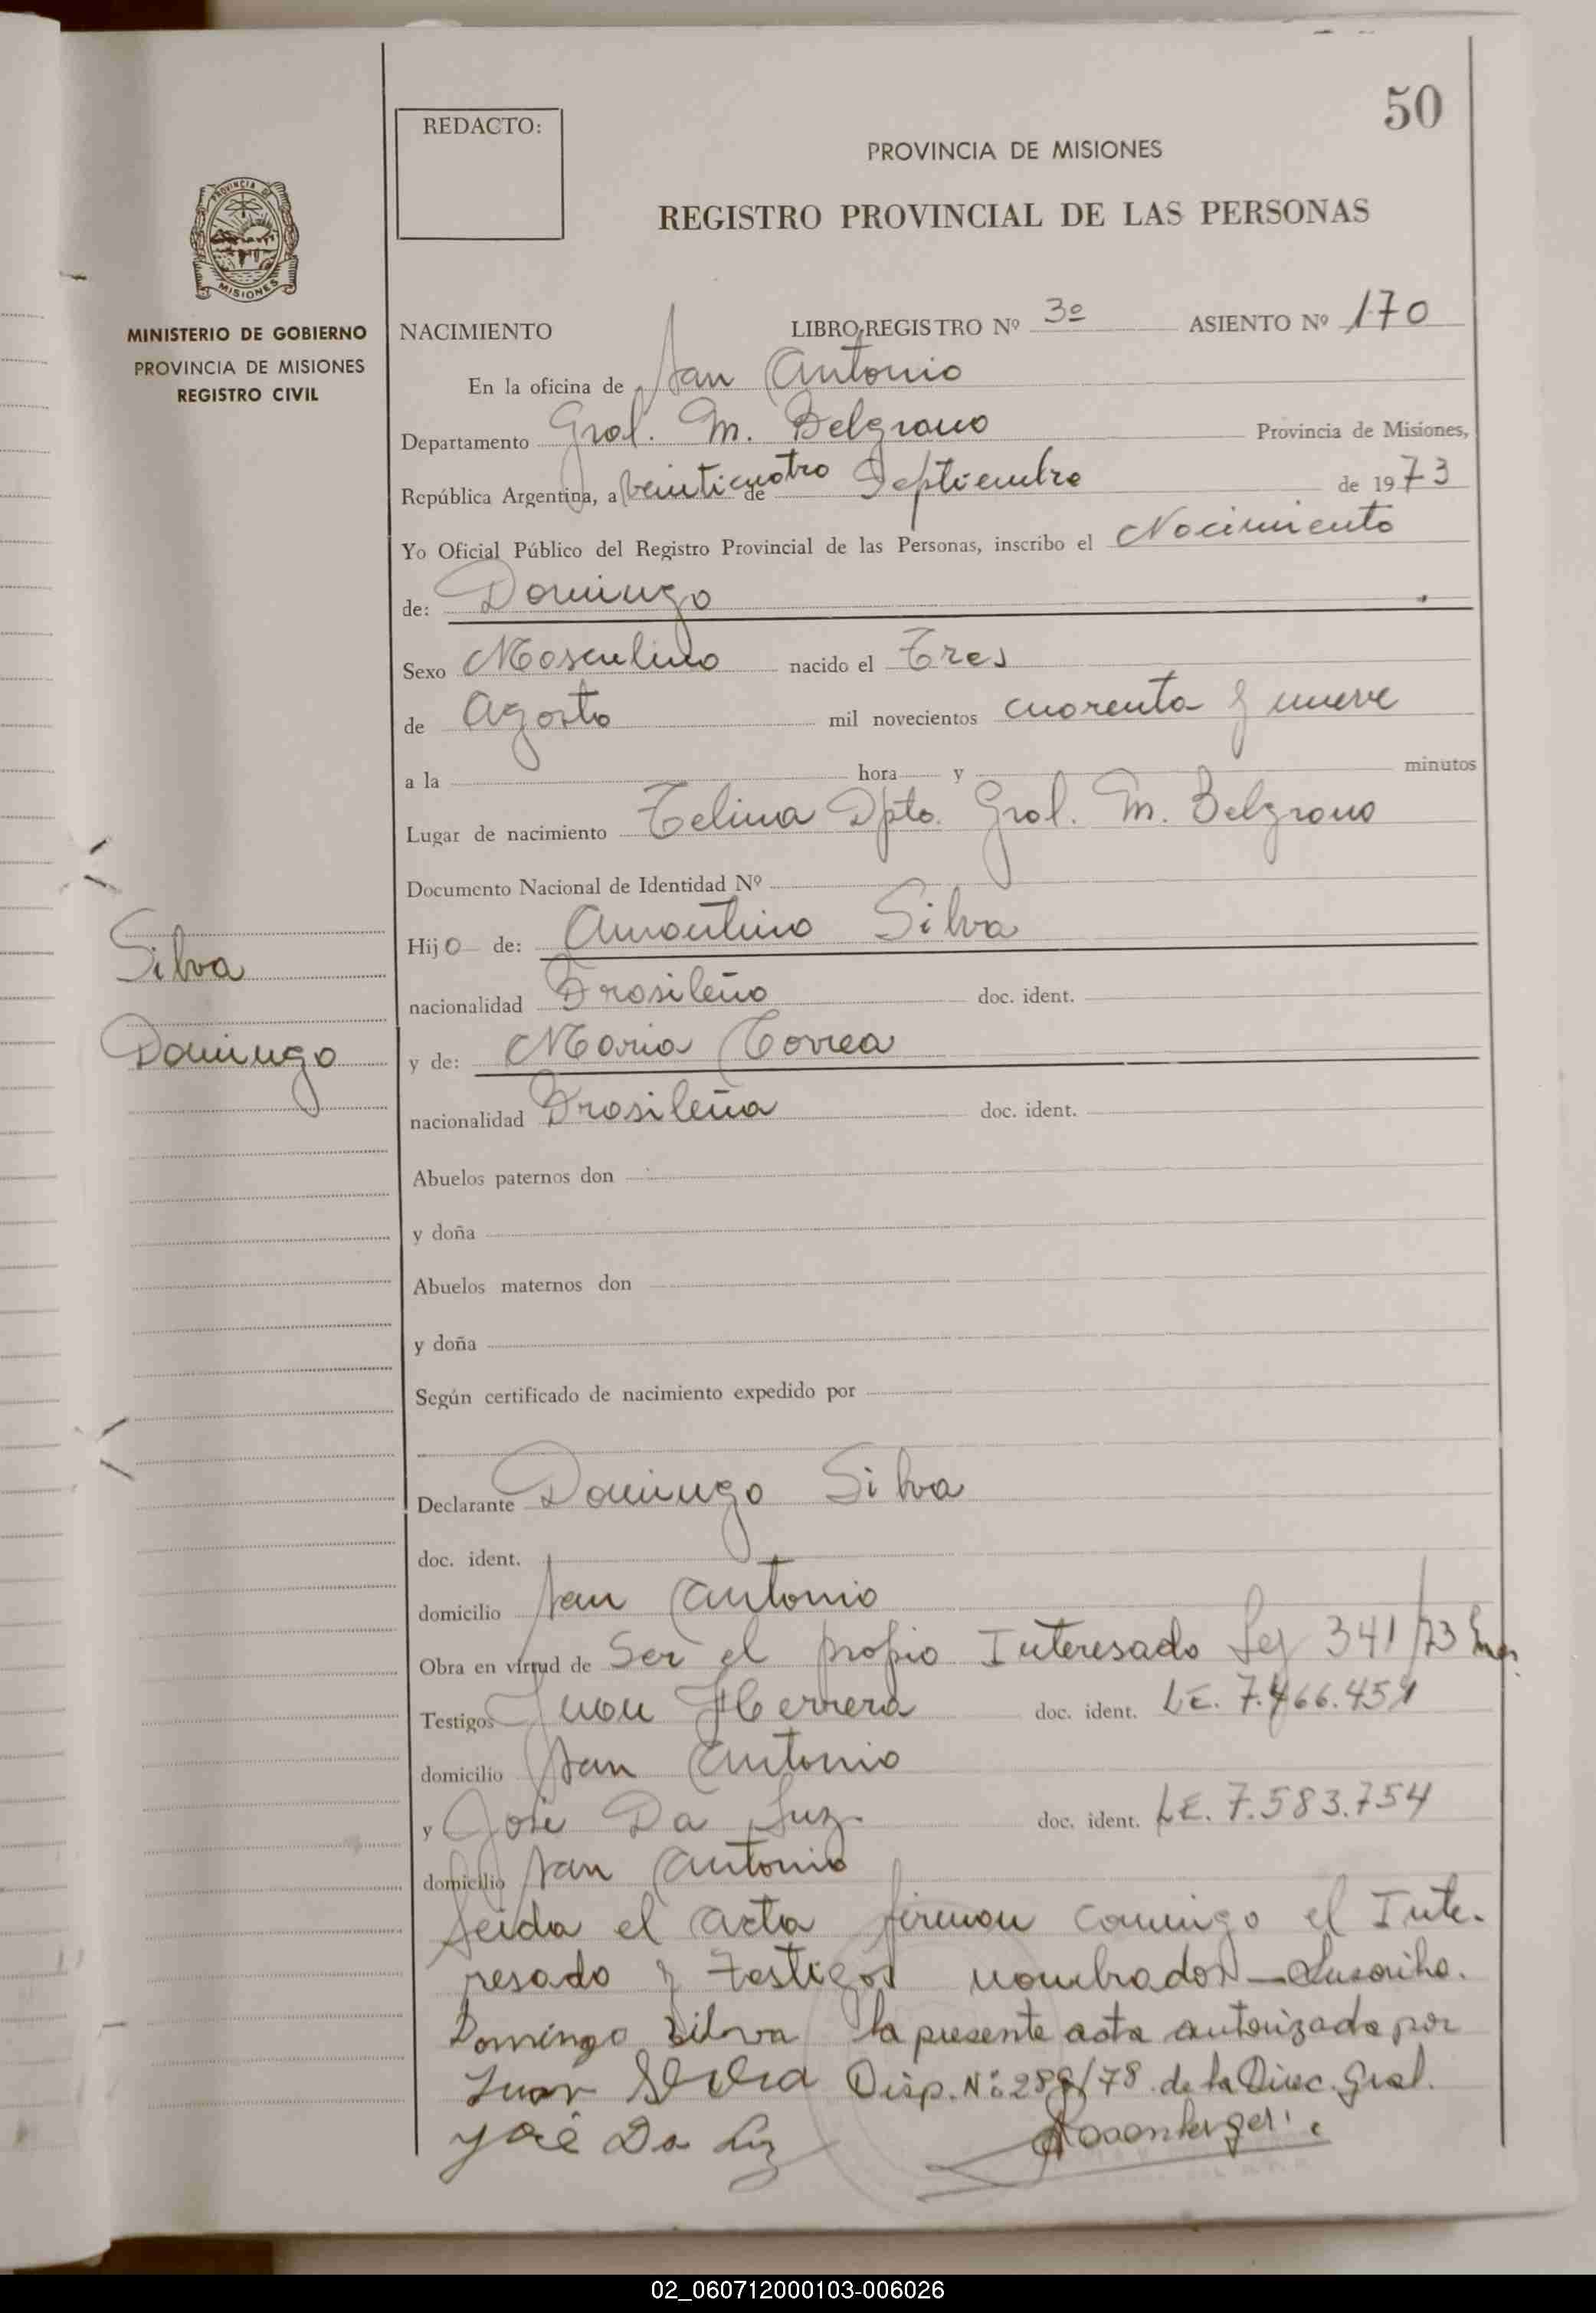 50
REDACTO:
PROVINCIA DE MISIONES
REGISTRO PROVINCIAL DE LAS PERSONAS
PROVINCIA DE
MISIONES
MINISTERIO DE GOBIERNO
PROVINCIA DE MISIONES
REGISTRO CIVIL
NACIMIENTO LIBRO REGISTRO Nº 3º ASIENTO Nº 170
En la oficina de San Antonio
Departamento Gral. M. Belgrano Provincia de Misiones,
República Argentina, a veinticuatro de Septiembre de 1973
Yo Oficial Público del Registro Provincial de las Personas, inscribo el Nacimiento
de: Domingo
Sexo Masculino nacido el Tres
de Agosto mil novecientos cuarenta y nueve
a la hora y minutos
Lugar de nacimiento Dpto. Gral. M. Belgrano
Documento Nacional de Identidad Nº
Hijo de: Amantino Silva
nacionalidad Brasileño doc. ident.
y de: Maria Correa
nacionalidad Brasileña doc. ident.
Silva
Domingo
Abuelos paternos don
y doña
Abuelos maternos don
y doña
Según certificado de nacimiento expedido por
Declarante Domingo Silva
doc. ident.
domicilio San Antonio
Obra en virtud de Ser el propio Interesado Ley 341/73
Testigos Juan Herrera doc. ident. LE.
domicilio San Antonio
y José Da Luz doc. ident. LE. 7.583.754
domicilio San Antonio
Leida el acta firman conmigo el Inte.
resado y testigos nombrados
Domingo Silva la presente acta autorizada por
Juan Disp. Nº 289/78 de la Direc. Gral.
José Da Luz
02_060712000103-006026